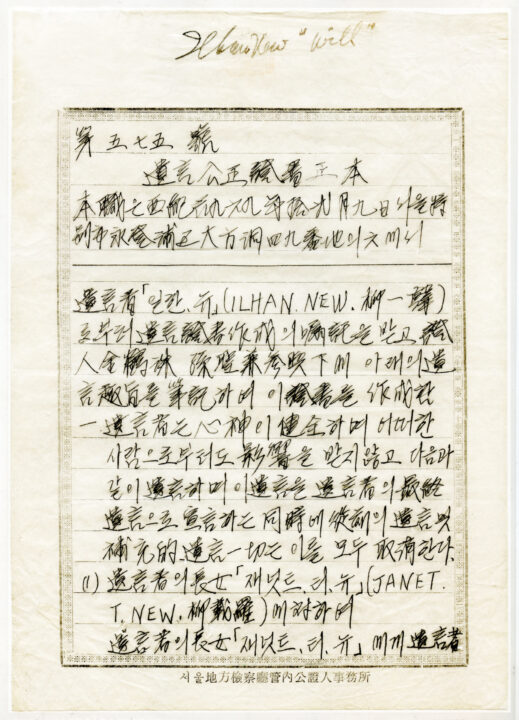 Ilhan New "Will"
第五七五號
遺言公正證書正本
本職는 西紀 九六九年拾 月九日 서울特
別市永登浦區大方洞四九番地의六에서
遺言者「일한.뉴」(ILHAN.NEW.柳一韓)
로부터 遺言證書作成의 囑託을 받고 證
人金 參與下에 아래의 遺
言趣旨를 筆記하여 이 證書를 作成함
一 遺言者는 心神이 健全하며 어떠한
사람으로부터도 影響을 받지 않고 다음과
같이 遺言하며 이 遺言을 遺言者의 最終
遺言으로 宣言하는 同時에 從前의 遺言 및
補充的 遺言一切는 이를 모두 取消한다.
(1) 遺言者의 長女「재닛트.티.뉴」(JANET.
T.NEW.柳載羅)에 対하여
遺言者의 長女「재닛트.티.뉴」에게 遺言者
서울地方檢察廳管內公證人事務所